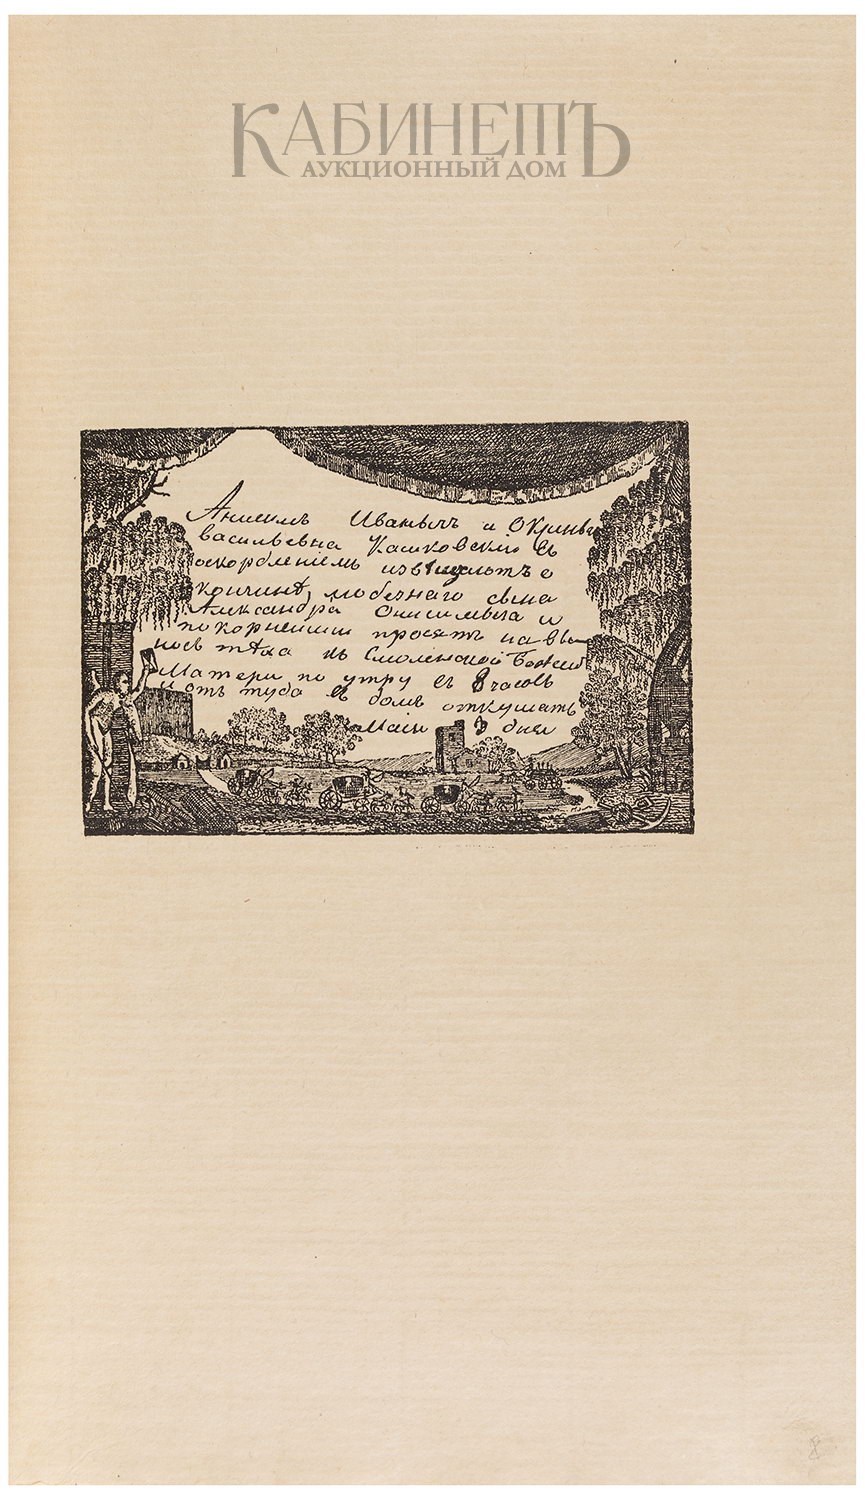 КАБИНЕТЪ
АУКЦИОННЫЙ ДОМ
Анисимъ Иванычъ и Окринья
васильевна Кашковскіи съ
оскорблениемъ извещаютъ о
кончинѣ любезнаго сына
Александра Онисимыча и
покорнейши просятъ на вы
носъ тѣла къ Смоленской Божей
Матери по утру въ 8 часовъ
И отъ туда въ домъ откушать
Маія дня
8